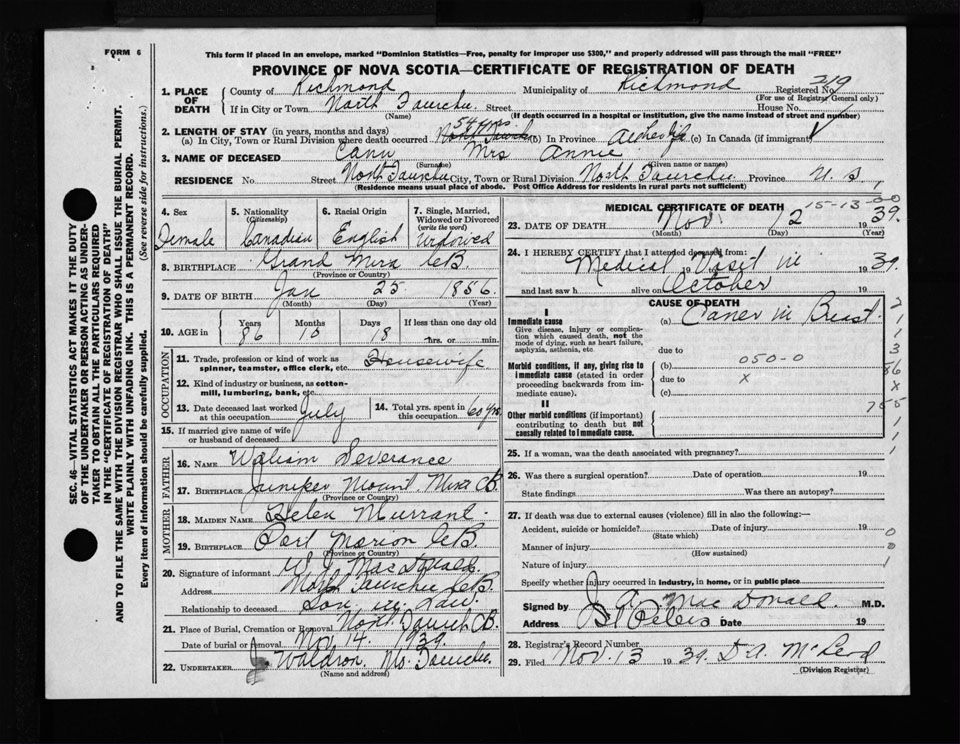 FORM 6
This form if placed in an envelope, marked "Dominion Statistics—Free, penalty for improper use $300," and properly addressed will pass through the mail "FREE"
PROVINCE OF NOVA SCOTIA—CERTIFICATE OF REGISTRATION OF DEATH
SEC. 46—VITAL STATISTICS ACT MAKES IT THE DUTY
OF THE UNDERTAKER OR PERSON ACTING AS UNDER-
TAKER TO OBTAIN ALL THE PARTICULARS REQUIRED
IN THE "CERTIFICATE OF REGISTRATION OF DEATH"
AND TO FILE THE SAME WITH THE DIVISION REGISTRAR WHO SHALL ISSUE THE BURIAL PERMIT.
WRITE PLAINLY WITH UNFADING INK. THIS IS A PERMANENT RECORD.
Every item of information should be carefully supplied. (See reverse side for instructions.)
1. PLACE OF DEATH County of Richmond Municipality of Richmond Registered No. 219
(For use of Registrar General only)
If in City or Town North Street House No.
(Name) (If death occurred in a hospital or institution, give the name instead of street and number)
2. LENGTH OF STAY (in years, months and days)
(a) In City, Town or Rural Division where death occurred 54 yrs (b) In Province (c) In Canada (if immigrant)
3. NAME OF DECEASED Cann Mrs Annie
(Surname) (Given name or names)
RESIDENCE No. Street North City, Town or Rural Division North Province N. S.
(Residence means usual place of abode. Post Office Address for residents in rural parts not sufficient)
4. Sex Female
5. Nationality (Citizenship) Canadian
6. Racial Origin English
7. Single, Married, Widowed or Divorced (write the word) Widowed
8. BIRTHPLACE Grand Mira C.B.
(Province or Country)
9. DATE OF BIRTH Jan 25 1856
(Month) (Day) (Year)
10. AGE in Years 86 Months 10 Days 18 If less than one day hrs. or min.
OCCUPATION
11. Trade, profession or kind of work as spinner, teamster, office clerk, etc. Housewife
12. Kind of industry or business, as cotton-mill, lumbering, bank, etc.
13. Date deceased last worked at this occupation July
14. Total yrs. spent in this occupation 60 yrs
15. If married give name of wife or husband of deceased
FATHER
16. NAME William Deverance
17. BIRTHPLACE Juniper Mount. Mira CB
(Province or Country)
MOTHER
18. MAIDEN NAME Helen Murrant
19. BIRTHPLACE Port Morien C.B.
(Province or Country)
20. Signature of informant MacDonald
Address North C.B.
Relationship to deceased Son in Law
21. Place of Burial, Cremation or Removal North CB.
Date of burial or removal Nov 14. 1939.
22. UNDERTAKER J. Waldron.
(Name and address)
MEDICAL CERTIFICATE OF DEATH
15-13-0-0
23. DATE OF DEATH Nov 12 1939.
(Month) (Day) (Year)
24. I HEREBY CERTIFY that I attended deceased from:
Medical Visit in 19 39.
and last saw h alive on October 19
CAUSE OF DEATH
I
Immediate cause
Give disease, injury or complication which caused death, not the mode of dying, such as heart failure, asphyxia, asthenia, etc.
(a) Cancer in Breast.
due to
Morbid conditions, if any, giving rise to immediate cause (stated in order proceeding backwards from immediate cause).
(b) 050-0
due to x
(c)
II
Other morbid conditions (if important) contributing to death but not causally related to immediate cause.
2
1
1
3
86
x
755
1
1
25. If a woman, was the death associated with pregnancy?
26. Was there a surgical operation? Date of operation 19
State findings Was there an autopsy?
27. If death was due to external causes (violence) fill in also the following:—
Accident, suicide or homicide? Date of injury 19
(State which)
Manner of injury
(How sustained)
Nature of injury
0
0
1
Specify whether injury occurred in industry, in home, or in public place
Signed by J. A. MacDonald. M.D.
Address St. Peters Date 19
28. Registrar's Record Number
29. Filed Nov. 13 1939. D A. McLeod
(Division Registrar)